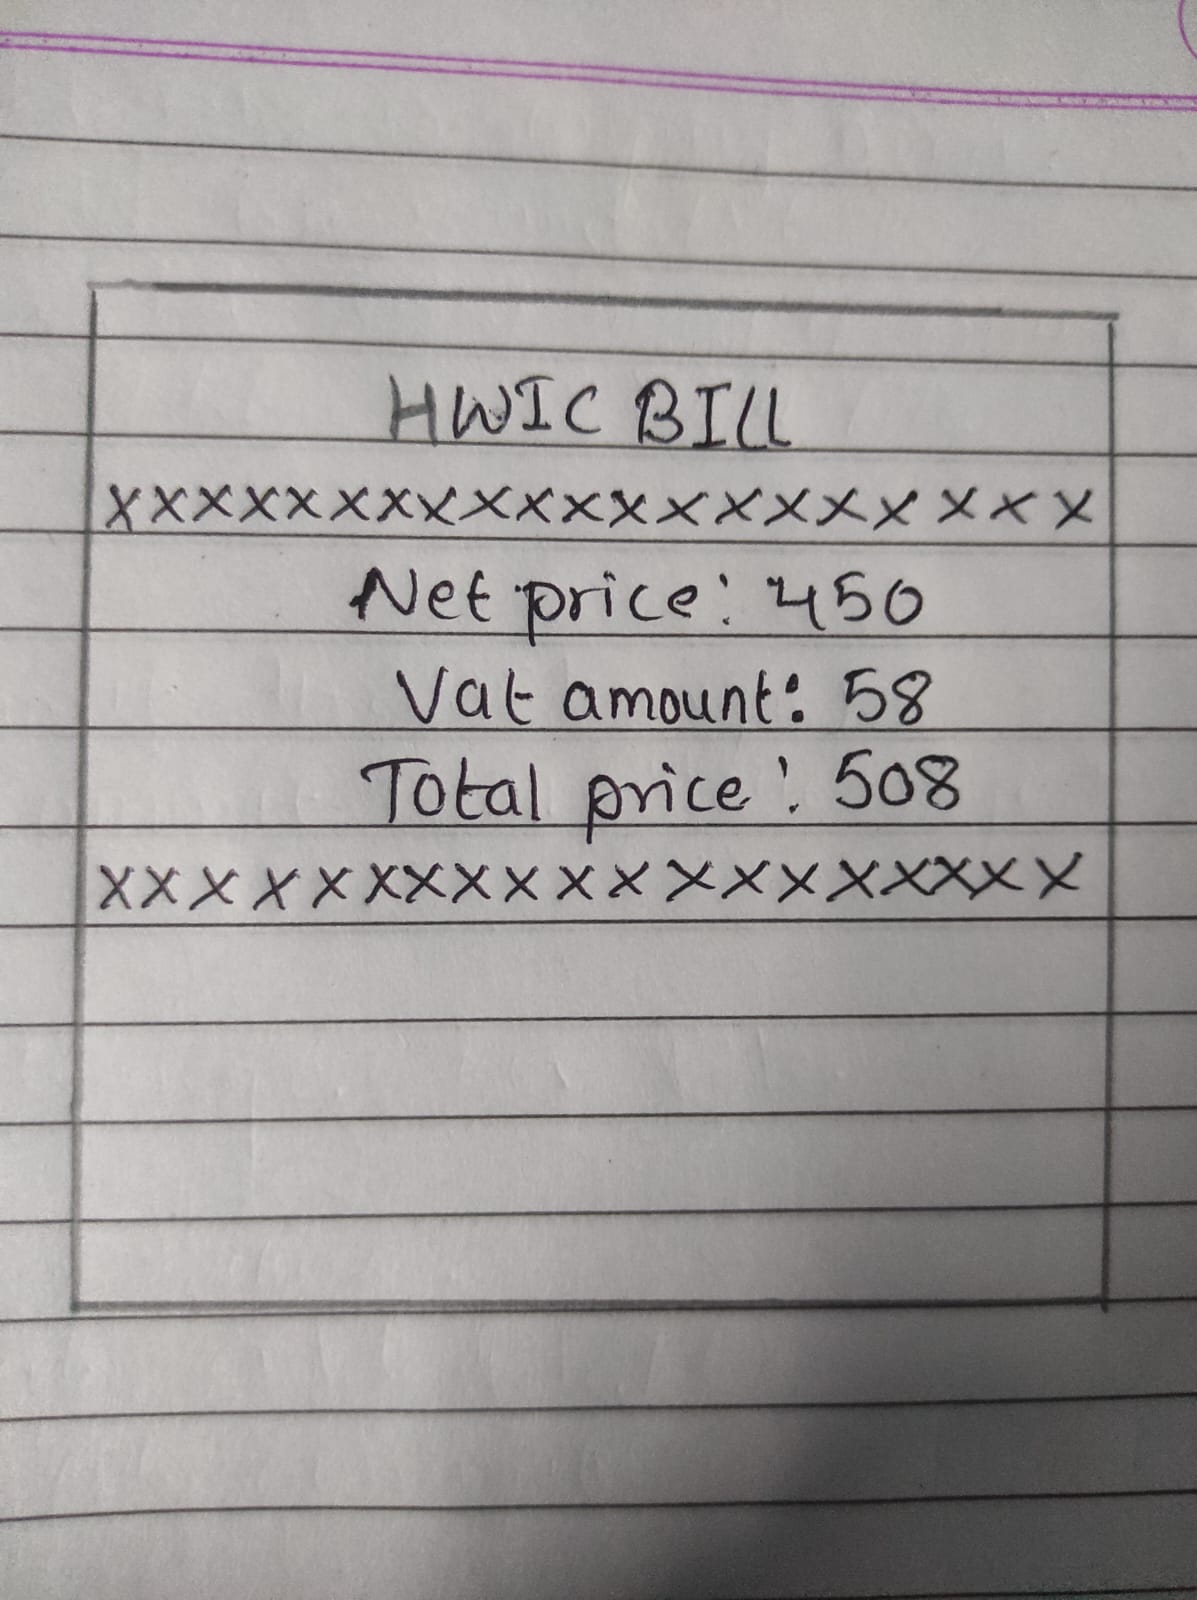 HWIC BILL
xxxxxxxxxxxxxxxxxxxx
Net price: 450
Vat amount: 58
Total price: 508
xxxxxxxxxxxxxxxxxxx